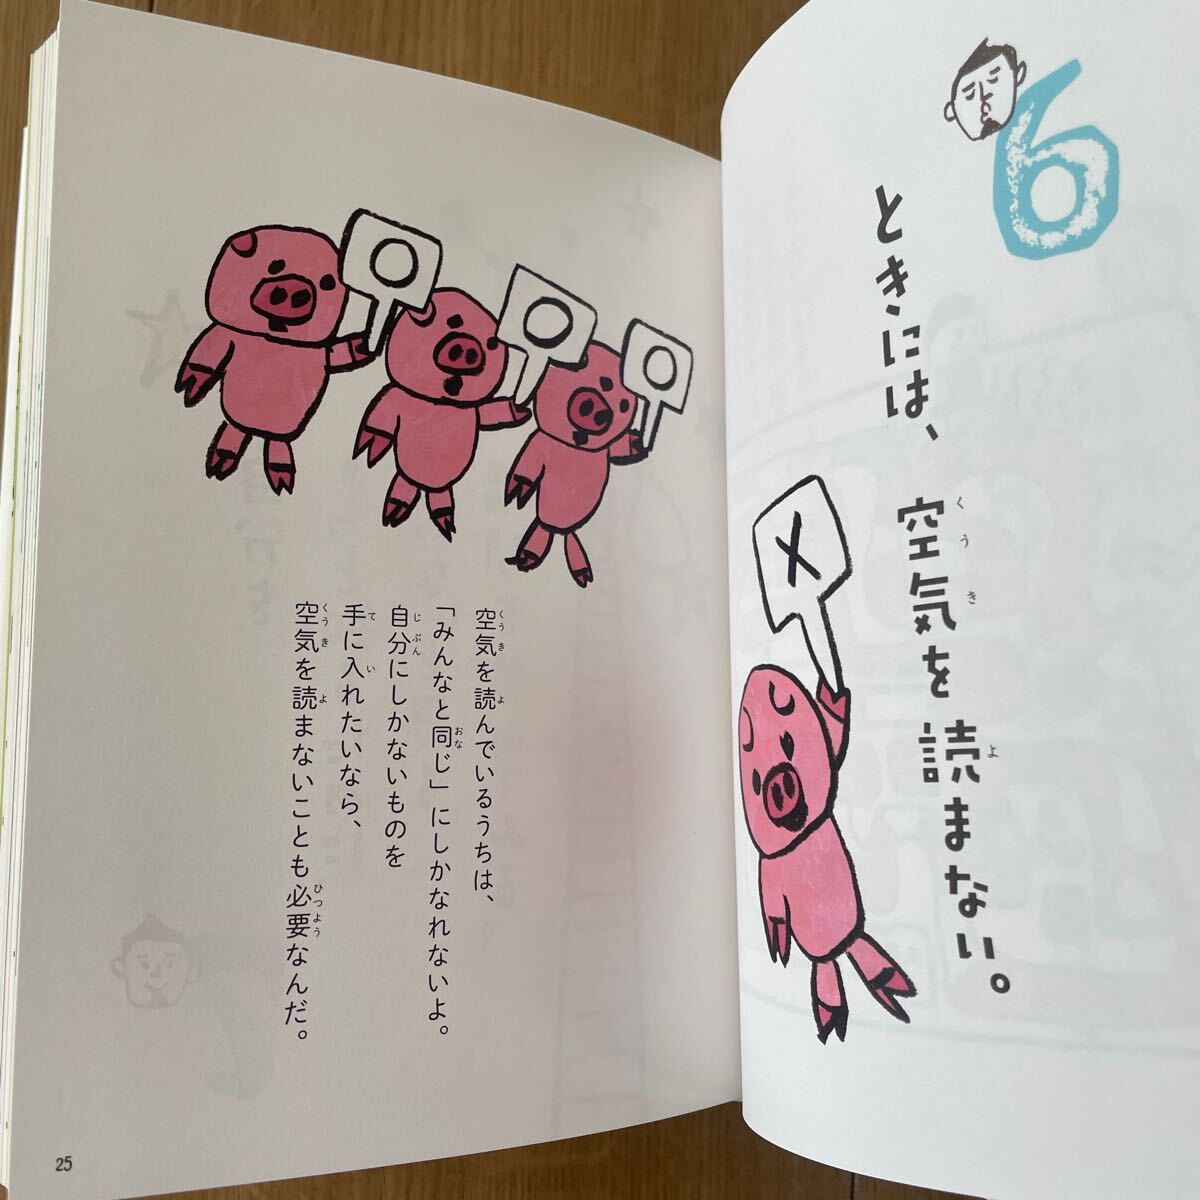 6
ときには、
空気を
読まない。
○
○
○
×
空気を読んでいるうちは、
「みんなと同じ」にしかなれないよ。
自分にしかないものを
手に入れたいなら、
空気を読まないことも必要なんだ。
25